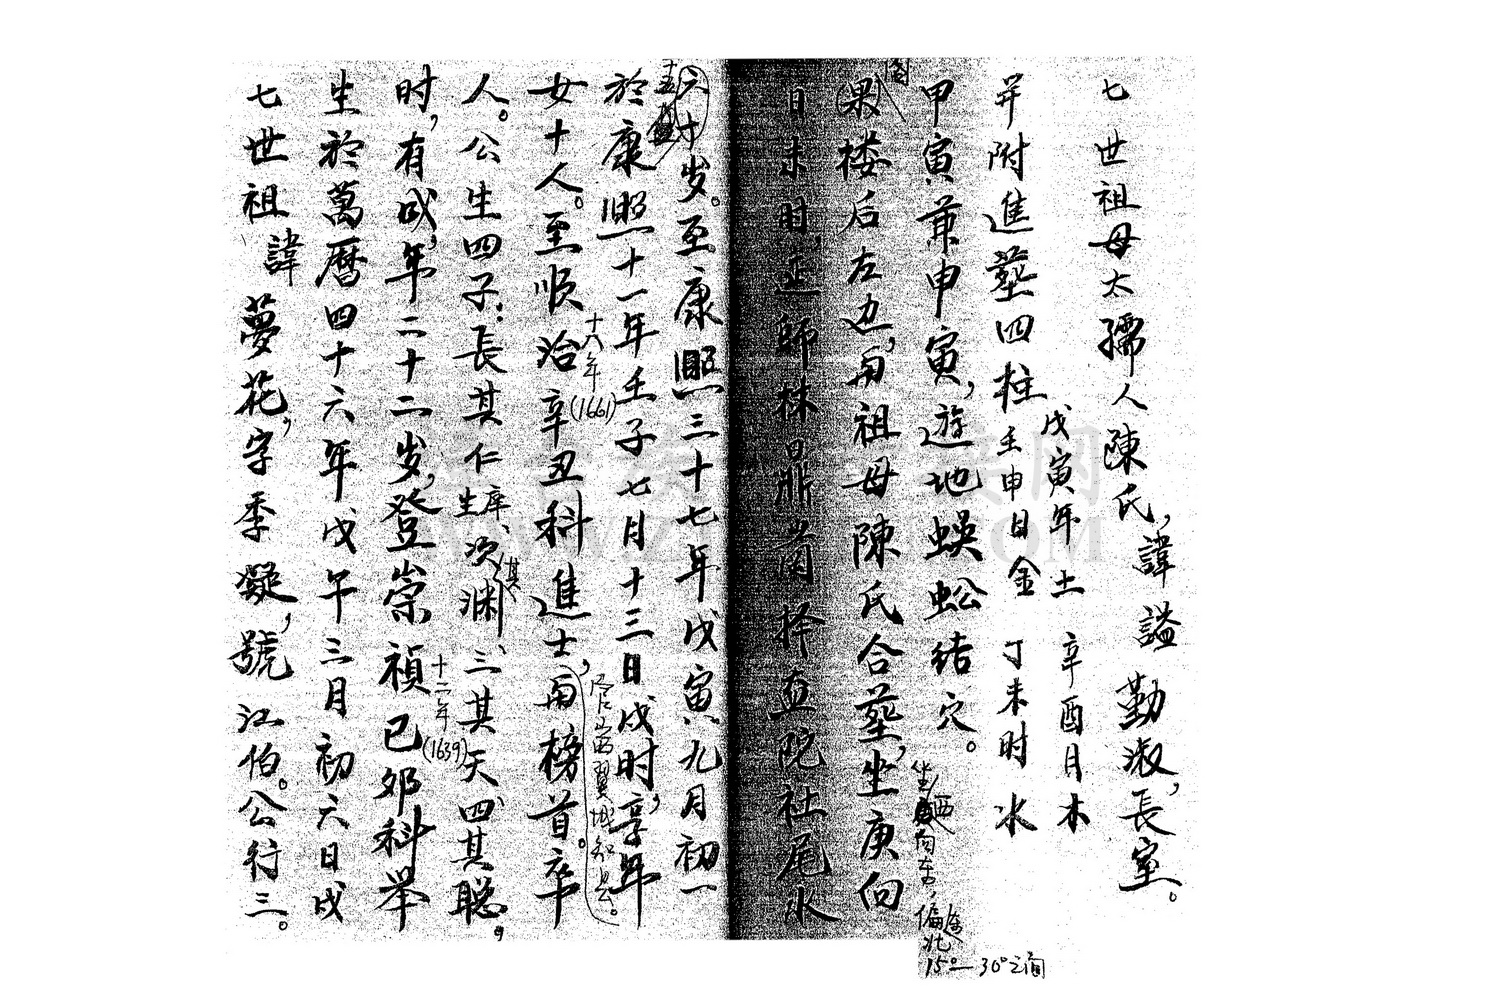 七世祖 諱 夢花，字季凝，號江伯。公行三。
生於萬曆四十六年戊午三月初六日戌
时，有成，年二十二岁，登崇禎己卯科举
十二年(1639)
人。公生四子：長其仁庠生、次其渊、三其天、四其聪。
女十人。至順治辛丑科進士，南榜首。卒
十八年(1661)
官至翼城知县。
於康熙十一年壬子七月十三日戌时，享年
五十五
六十岁。至康熙三十七年戊寅九月初一
日未时，正師林日鼎 择 院社尾水
阁
(果)楼后左边，与祖母陳氏合墓，坐庚向
甲寅兼申寅，遊地蜈蚣结穴。
坐西向东，偏北
15°—30°之间
并附進墓四柱 戊寅年土 辛酉月木
壬申日金 丁未时水
七世祖母太孺人陳氏，諱謚勤淑，長室。